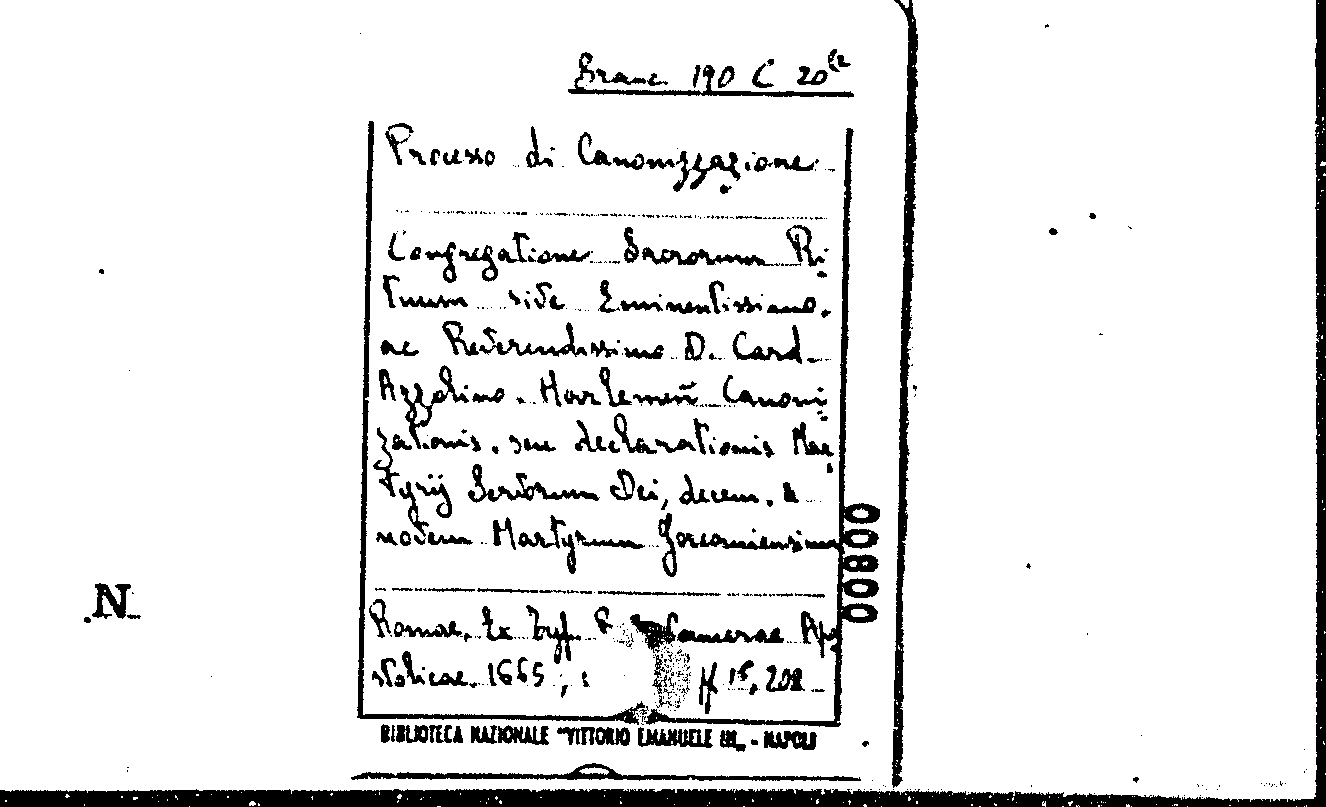 Branc. 190 C 20
Processo di Canonizzazione
Congregatione Sacrorum Ri-
tuum sive Eminentissimo.
ac Reverendissimo D. Card.
Azzolino. Harlemeñ Canoni-
zationis, seu declarationis Mar-
tyrij Servorum Dei, decem, &
novem Martyrum Gorcomiensium
Romae, Ex Typ. Camerae Apo
stolicae. 1665, : 15, 208
BIBLIOTECA NAZIONALE "VITTORIO EMANUELE III" - NAPOLI
00800
N